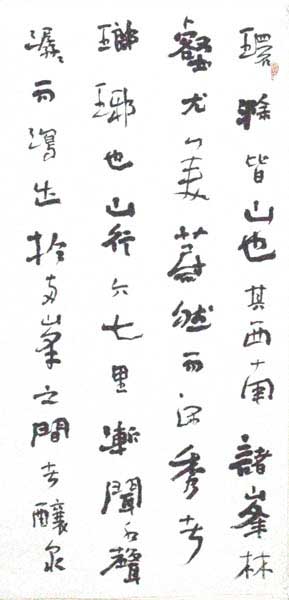 環滁皆山也其西南諸峯林
壑尤美蔚然而深秀者
瑯琊也山行六七里漸聞水聲
潺〻而瀉出於兩峯之間者釀泉